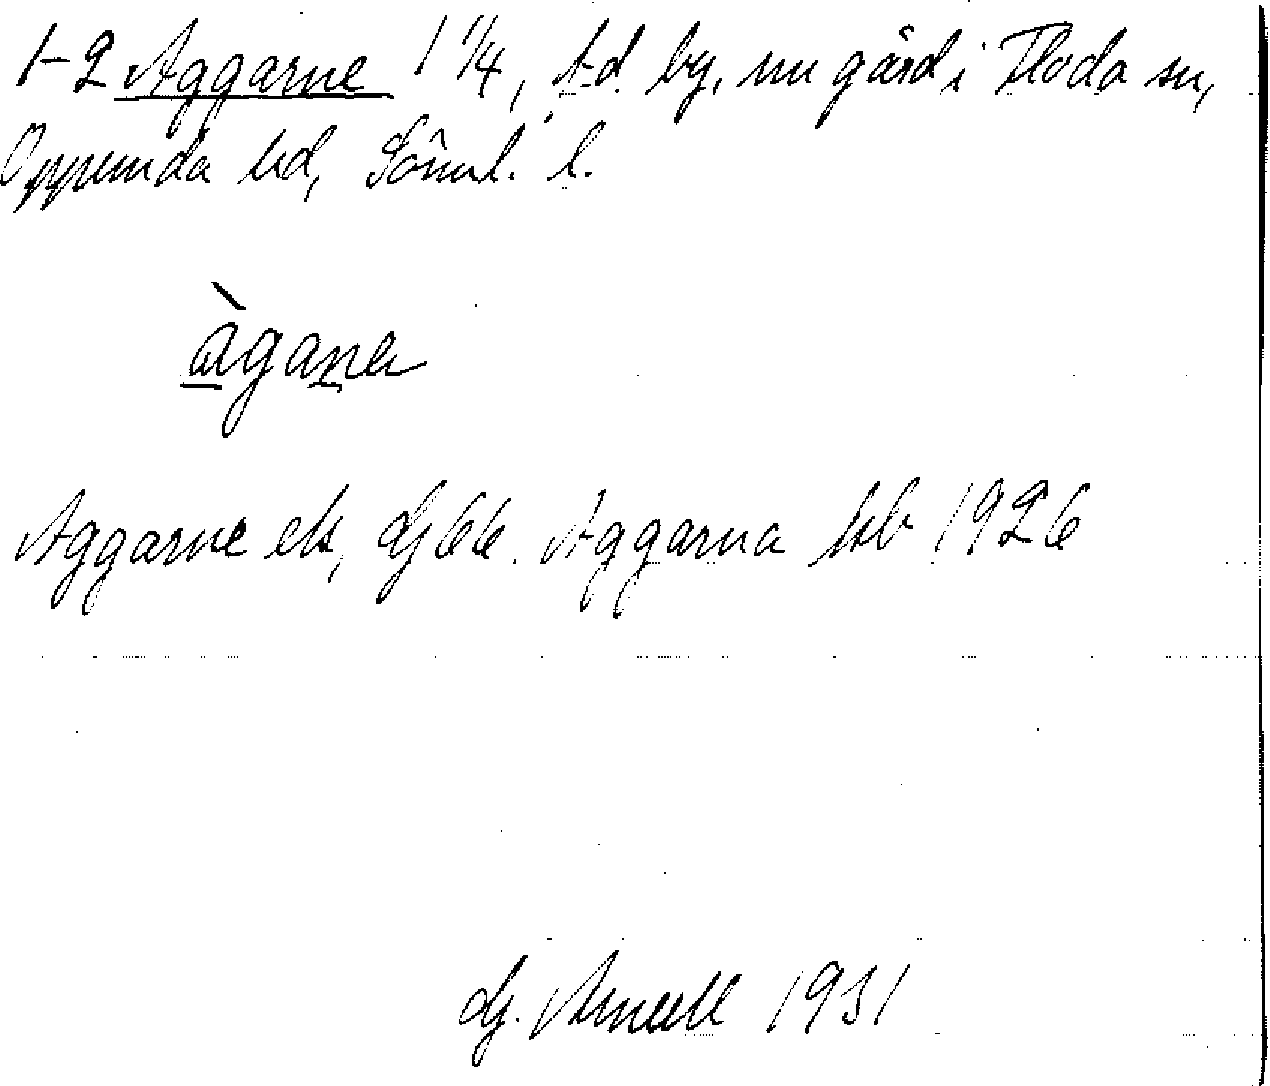 1-2 Aggarne 1 1/4, f.d. by, nu gård i Floda sn,
Oppunda hd, Söml. l.
àgaṉa
Aggarne ek, dj 66. Aggarna kb 1926
Dj. Arnell 1931